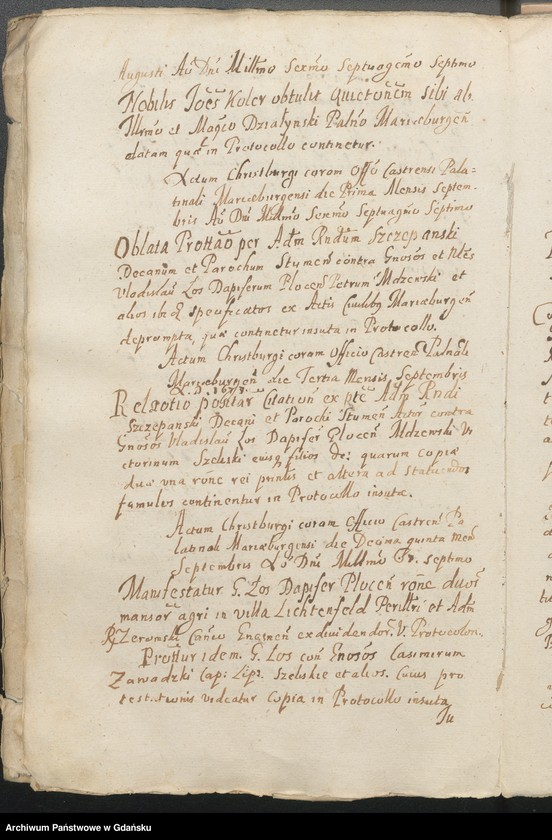 Augusti Ao Dni Millmo Sexmo Septuagemo Septimo
Nobilis Joes Koler obtulit Quietoem sibi ab
Illrmo et Magco Działynski Palno Mariaeburgen
datam quae in Protocollo continetur.
Actum Christburgi coram Offo Castrensi Pala=
tinali Mariaeburgensi die Prima Mensis Septem-
bris Ao Dni Millmo Sexmo Septuagmo Septimo
Oblata Prottao per Adm Rndum Szczepanski
Decanum et Parochum Stumen contra Gnosos et
Vladislau Łos Dapiferum Plocen Petrum Mdzewski et
alios ibi specificatos ex Actis Mariaeburgen
deprompta, quae continetur insuta in Protocollo.
Actum Christburgi coram Officio Castren Palnali
Mariaeburgen die Tertia Mensis Septembris
A. D. 1677.
Relatio Citation ex Adm Rndi
Szczepanski Decani et Parochi Stumen Actos contra
Gnosos Vladislau Łos Dapifer Plocen Mdzewski Vi
ctorinum Szeliski eiusq filios de: quarum copiae
duae una rone rei printis et altera ad statuendos
famulos continentur in Protocollo insutae.
Actum Christburgi coram Officio Castren Pa
latinali Mariaeburgensi die Decima quinta Men
Septembris Ao Dni Millmo Septimo
Manifestatur G. Łos Dapifer Plocen rone duor
mansor agri in villa Lichtenfeld Perillri et Adm
Rd Zeromski ex dividendor. V. Protocolon.
Prottur idem. G. Łos con Gnosos Casimirum
Zawadzki Cap: Lip: Szeliskie et alios. Cuius pro
testationis videatur Copia in Protocollo insuta
Ju
Archiwum Państwowe w Gdańsku